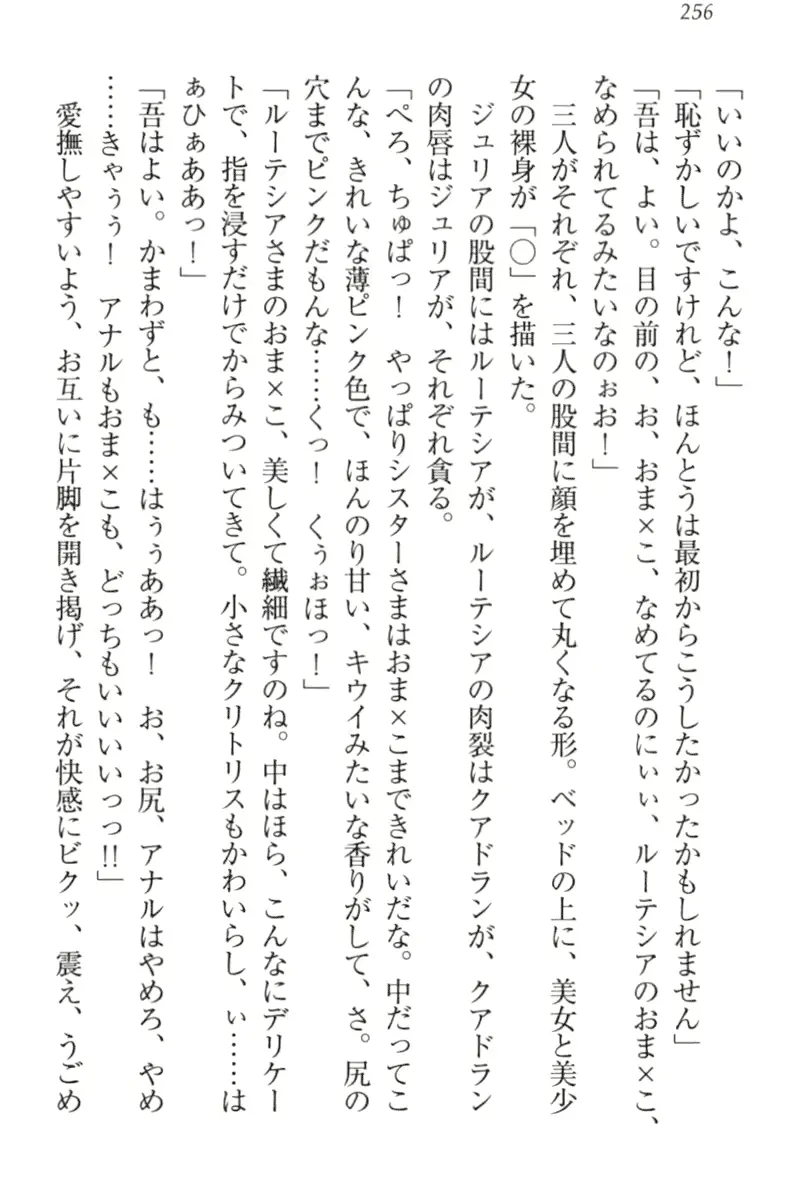 256
「いいのかよ、こんな！」
「恥ずかしいですけれど、ほんとうは最初からこうしたかったかもしれません」
「吾は、よい。目の前の、お、おま×こ、なめてるのにぃぃ、ルーテシアのおま×こ、
なめられてるみたいなのぉお！」
　三人がそれぞれ、三人の股間に顔を埋めて丸くなる形。ベッドの上に、美女と美少
女の裸身が「〇」を描いた。
　ジュリアの股間にはルーテシアが、ルーテシアの肉裂はクアドランが、クアドラン
の肉唇はジュリアが、それぞれ貪る。
「ぺろ、ちゅぱっ！　やっぱりシスターさまはおま×こまできれいだな。中だってこ
んな、きれいな薄ピンク色で、ほんのり甘い、キウイみたいな香りがして、さ。尻の
穴までピンクだもんな……くっ！　くぅぉほっ！」
「ルーテシアさまのおま×こ、美しくて繊細ですのね。中はほら、こんなにデリケー
トで、指を浸すだけでからみついてきて。小さなクリトリスもかわいらし、ぃ……は
ぁひぁああっ！」
「吾はよい。かまわずと、も……はぅぅああっ！　お、お尻、アナルはやめろ、やめ
……きゃぅぅ！　アナルもおま×こも、どっちもいいいいっっ!!」
　愛撫しやすいよう、お互いに片脚を開き掲げ、それが快感にビクッ、震え、うごめ